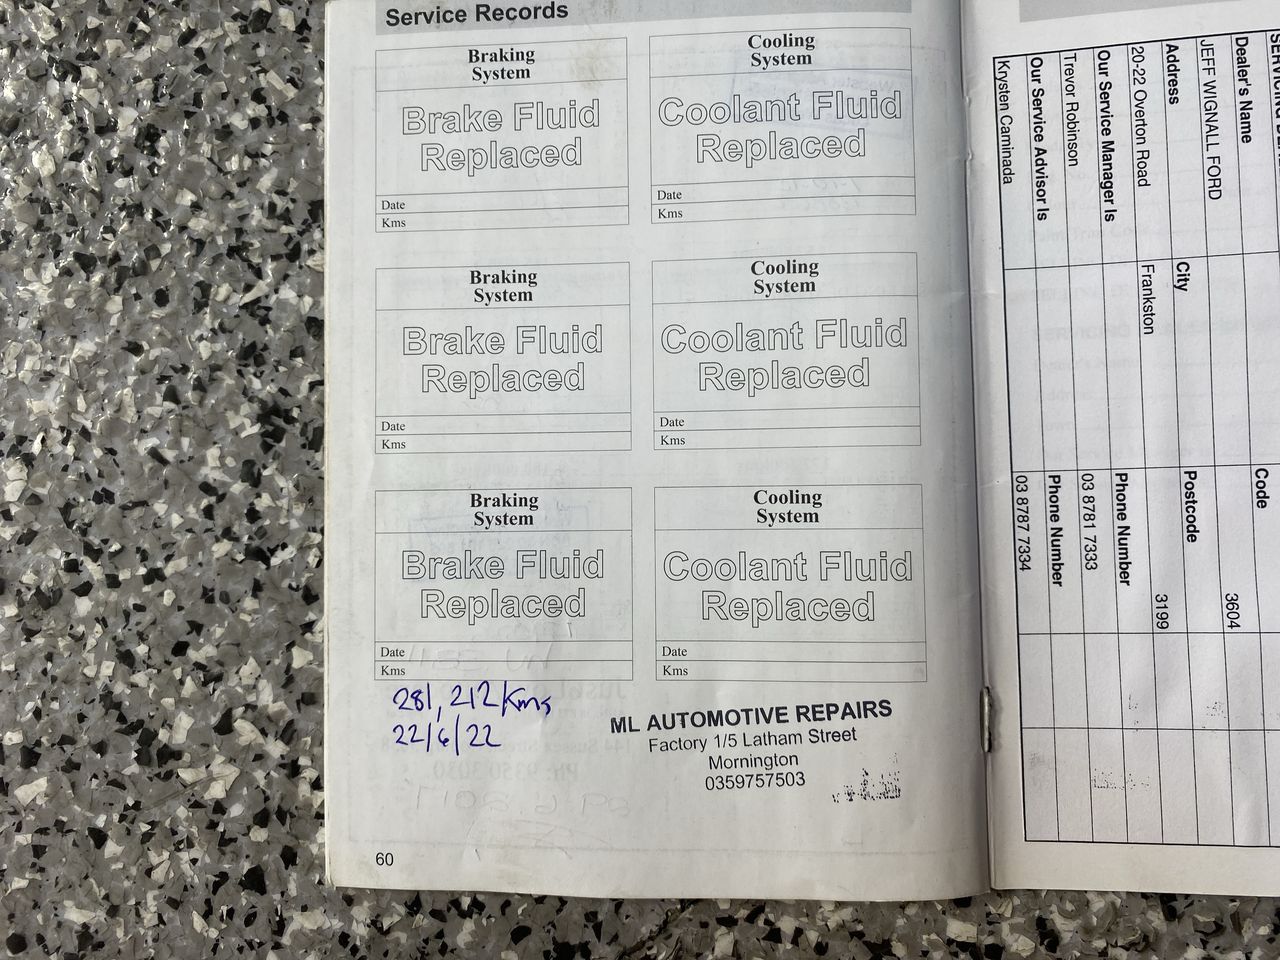 Service Records
Braking
System
Brake Fluid
Replaced
Date
Kms
Cooling
System
Coolant Fluid
Replaced
Date
Kms
Braking
System
Brake Fluid
Replaced
Date
Kms
Cooling
System
Coolant Fluid
Replaced
Date
Kms
Braking
System
Brake Fluid
Replaced
Date
Kms
Cooling
System
Coolant Fluid
Replaced
Date
Kms
281,212 Kms
22/6/22
ML AUTOMOTIVE REPAIRS
Factory 1/5 Latham Street
Mornington
0359757503
60
Dealer's Name
Code
JEFF WIGNALL FORD
3604
Address
City
Postcode
20-22 Overton Road
Frankston
3199
Our Service Manager Is
Phone Number
Trevor Robinson
03 8781 7333
Our Service Advisor Is
Phone Number
Krysten Caminada
03 8787 7334